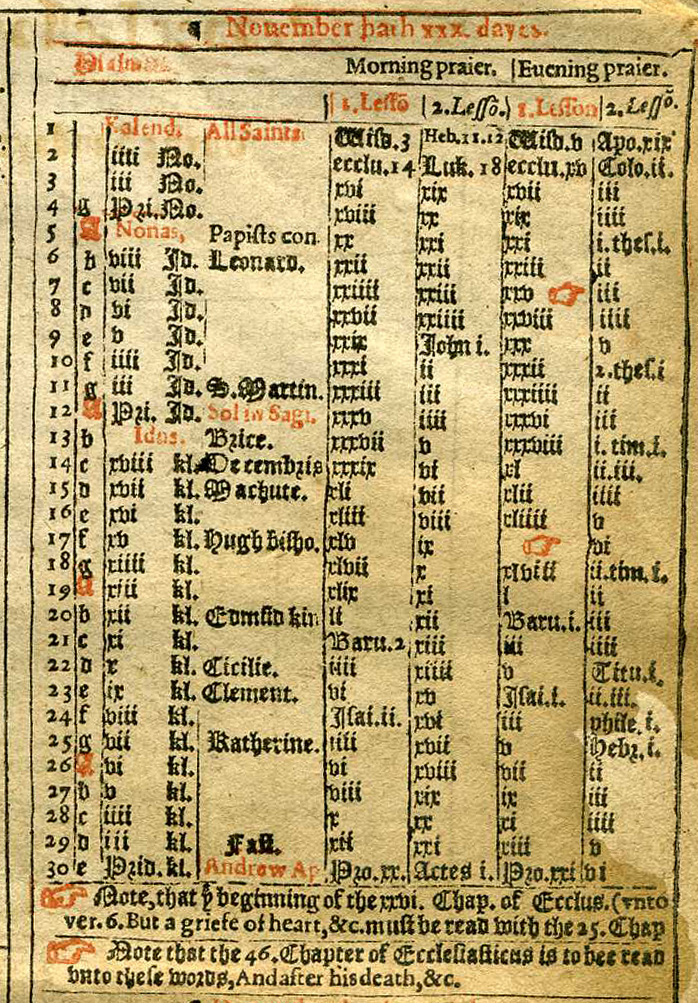 ¶ Nouember hath xxx. dayes.
Psalmes. Morning praier. | Euening praier.
1.Lessō 2.Lessō. 1.Lesson 2.Lessō.
1 Kalend. All Saints Wisd.3 Heb.11.12 Wisd.v Apo.xix
2 iiii No. ecclu.14 Luk.18 ecclu.xv Colo.ii.
3 iii No. xvi xix xvii iii
4 g Pri.No. xviii xx xix iiii
5 A Nonas, Papists con. xx xxi xxi i.thes.i.
6 b viii Id. Leonard. xxii xxii xxiii ii
7 c vii Id. xxiiii xxiii xxv ☞ iii
8 d vi Id. xxvii xxiiii xxviii iiii
9 e v Id. xxix John i. xxx v
10 f iiii Id. xxxi ii xxxii 2.thes.i
11 g iii Id. S.Martin. xxxiii iii xxxiiii ii
12 A Pri. Id. Sol in Sagi. xxxv iiii xxxvi iii
13 b Idus. Brice. xxxvii v xxxviii i.tim.i.
14 c xviii kl. Decembris xxxix vi xl ii.iii.
15 d xvii kl. Machute. xli vii xlii iiii
16 e xvi kl. xliii viii xliiii v
17 f xv kl. Hugh bisho. xlv ix ☞ vi
18 g xiiii kl. xlvii x xlviii ii.tim.i.
19 A xiii kl. xlix xi l ii
20 b xii kl. Edmūd kin li xii Baru.i. iii
21 c xi kl. Baru.2 xiii iii iiii
22 d x kl. Cicilie. iiii xiiii v Titu.i.
23 e ix kl. Clement. vi xv Isai.i. ii.iii.
24 f viii kl. Isai.ii. xvi iii phile.i.
25 g vii kl. Katherine. iiii xvii v Hebr.i.
26 A vi kl. vi xviii vii ii
27 b v kl. viii xix ix iii
28 c iiii kl. x xx xi iiii
29 d iii kl. Fast. xii xxi xiii v
30 e Prid.kl. Andrew Ap Pro.xx. Actes i. Pro.xxi vi
☞ Note, that yͤ beginning of the xxvi. Chap. of Ecclus. (vnto
ver.6. But a griefe of heart, &c. must be read with the 25. Chap
☞ Note that the 46. Chapter of Ecclesiasticus is to bee read
vnto these words, And after his death, &c.